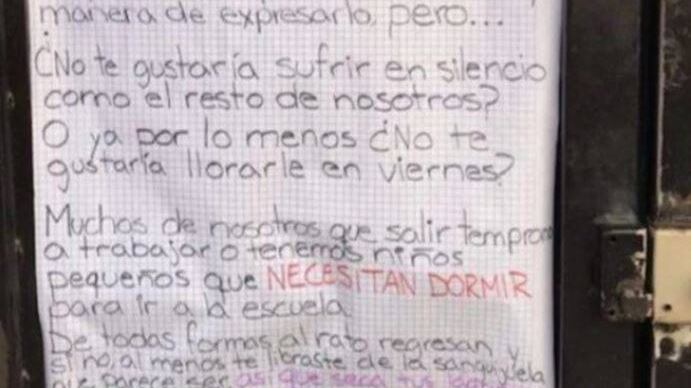 manera de expresarlo, pero...
¿No te gustaría sufrir en silencio
como el resto de nosotros?
O ya por lo menos ¿No te
gustaría llorarle en viernes?
Muchos de nosotros que salir temprano
a trabajar o tenemos niños
pequeños que NECESITAN DORMIR
para ir a la escuela
De todas formas al rato regresan y
si no, al menos te libraste de la sanguijuela
que parece ser así que seca tus